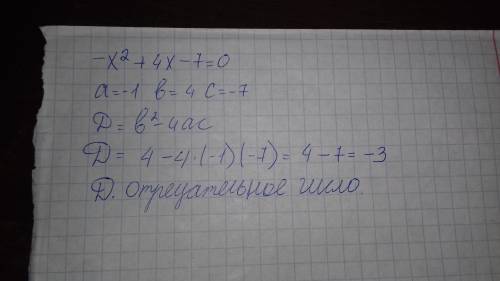 -x²+4x-7=0
a=-1 в=4 c=-7
D=в²-4ac
D= 4-4·(-1)(-7)=4-7=-3
D. отрецательное число